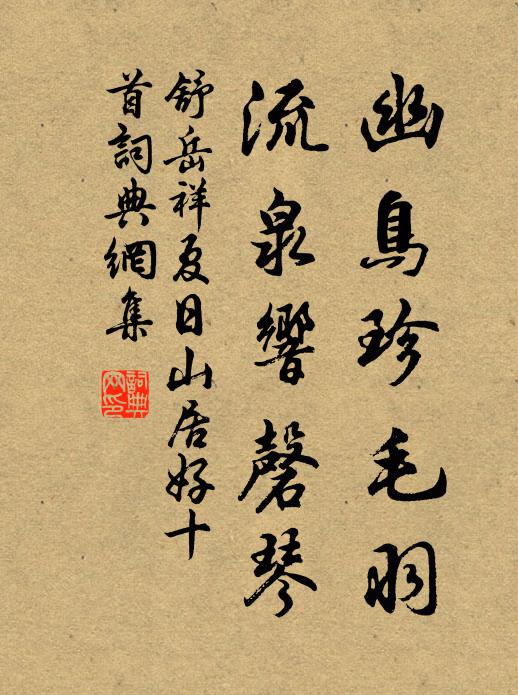 幽鳥珍毛羽
流泉響磬琴
舒岳祥夏日山居好十
首詞典網集
詞典
网印